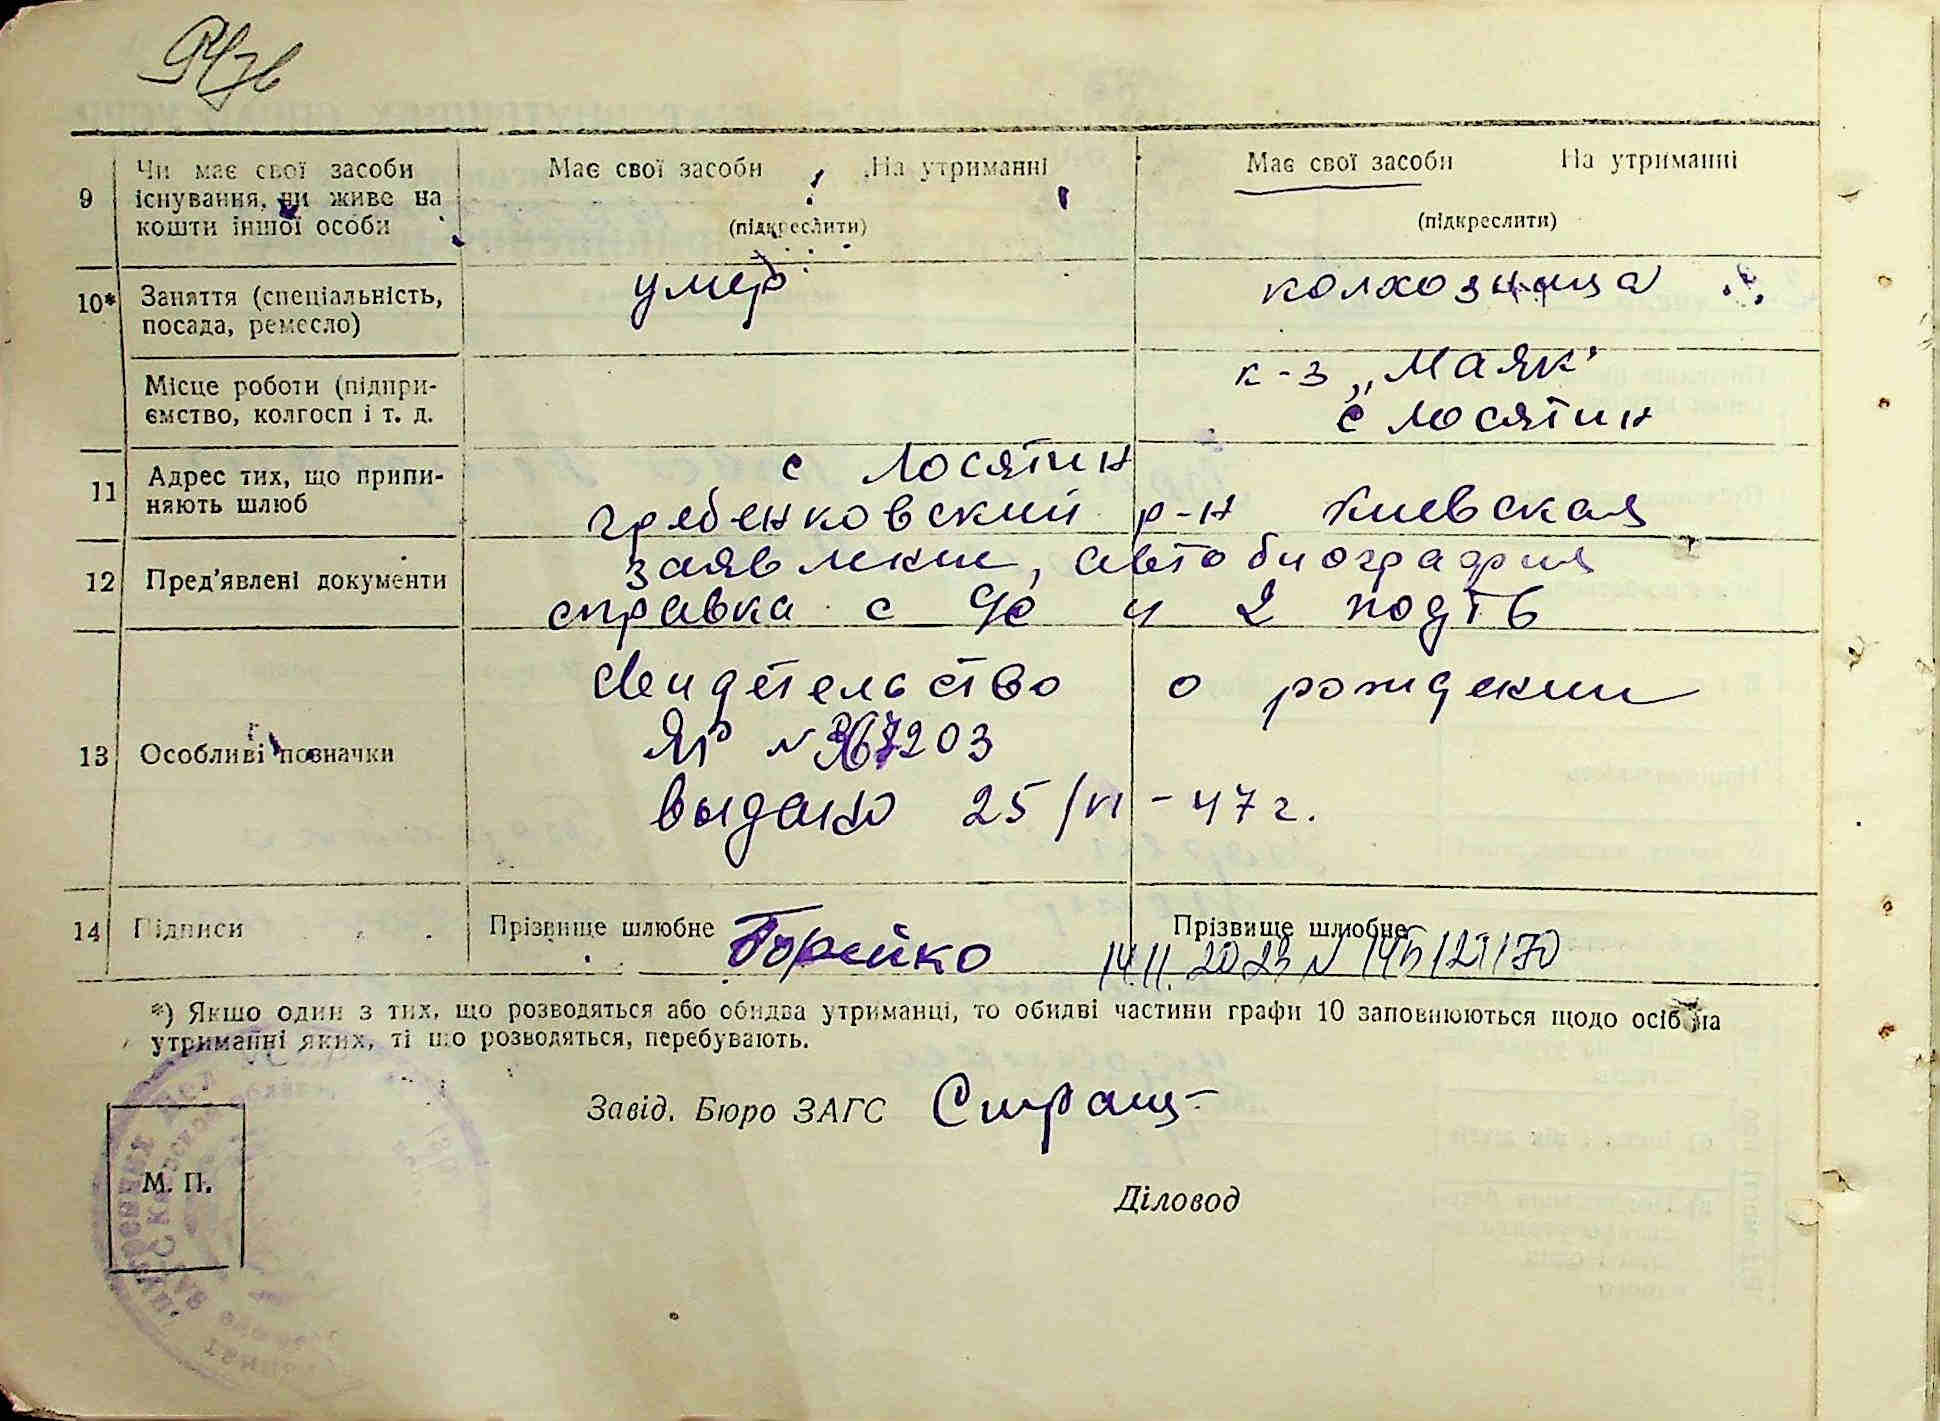 9 Чи має свої засоби існування, чи живе на кошти іншої особи
Має свої засоби На утриманні
(підкреслити)
Має свої засоби На утриманні
(підкреслити)
10* Заняття (спеціальність, посада, ремесло)
умер
колхозница
Місце роботи (підприємство, колгосп і т. д.
к-з „Маяк"
с Лосятин
11 Адрес тих, що припиняють шлюб
с Лосятин
гребенковский р-н Киевская
12 Пред'явлені документи
заявление, автобиография
справка с и 2 подтв
13 Особливі позначки
свидетельство о рождении
ЯР №
выдано 25/VI-47 г.
14 Підписи
Прізвище шлюбне Борейко
Прізвище шлюбне
14.11.2023 N 145/21/70
*) Якшо один з тих, що розводяться або обидва утриманці, то обидві частини графи 10 заповнюються щодо осіб на
утриманні яких, ті що розводяться, перебувають.
Завід. Бюро ЗАГС
М. П.
Діловод